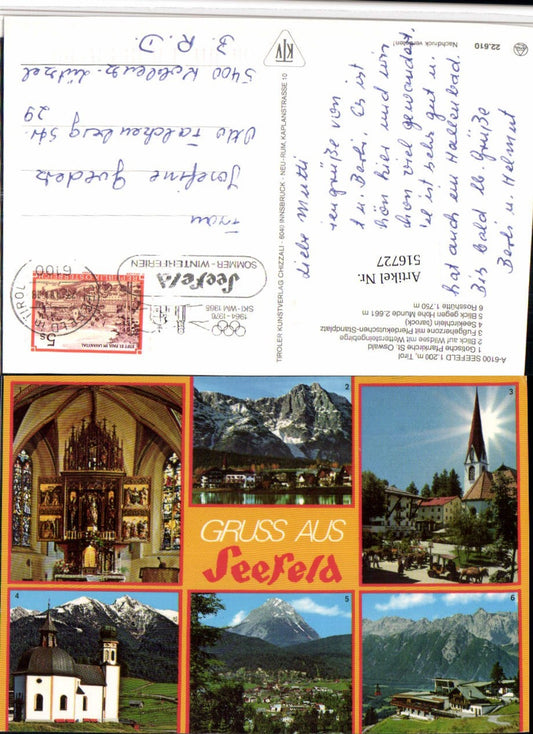 22.610
Nachdruck verboten!
KIV
TIROLER KUNSTVERLAG CHIZZALI · 6040 INNSBRUCK - NEU-RUM, KAPLANSTRASSE 10
A-6100 SEEFELD 1.200 m, Tirol
1 Gotische Pfarrkirche St. Oswald
2 Blick auf Wildsee mit Wettersteingebirge
3 Fußgeherzone mit Pferdekutschen-Standplatz
4 Seekirchlein (barock)
5 Blick gegen Hohe Munde 2.661 m
6 Rosshütte 1.750 m
Liebe Mutti
iengrüße von
t u. Berti. Es ist
hön hier und wir
chon viel gewandert.
'e ist sehr gut u.
hat auch ein Hallenbad.
Bis bald lb. Grüße
Berti u. Helmut
Artikel Nr.
516727
1964 - 1976
SKI-WM 1985
Seefeld
SOMMER - WINTERFERIEN
6100
TIROL
5s
STIFT ST. PAUL IM LAVANTTAL
REPUBLIK ÖSTERREICH
Frau
Josefine
Otto Falckenberg Str.
29
5400 Koblenz-Lützel
B. R. D.
2
3
GRUSS AUS
Seefeld
4
5
6